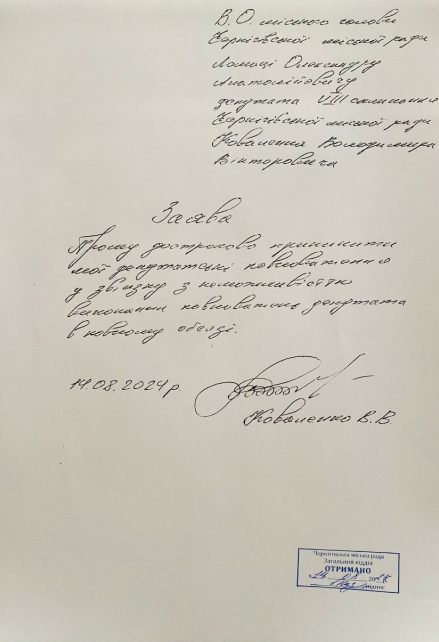 В.О. міського голови
Чернігівської міської ради
Ломаці Олександру
Анатолійовичу
депутата VIII скликання
Чернігівської міської ради
Коваленка Володимира
Вікторовича
Заява
Прошу достроково припинити
мої депутатські повноваження
у зв'язку з неможливістю
виконання повноважень депутата
в повному обсязі.
14.08.2024 р
Коваленко В.В.
Чернігівська міська рада
Загальний відділ
ОТРИМАНО
14 08 2024